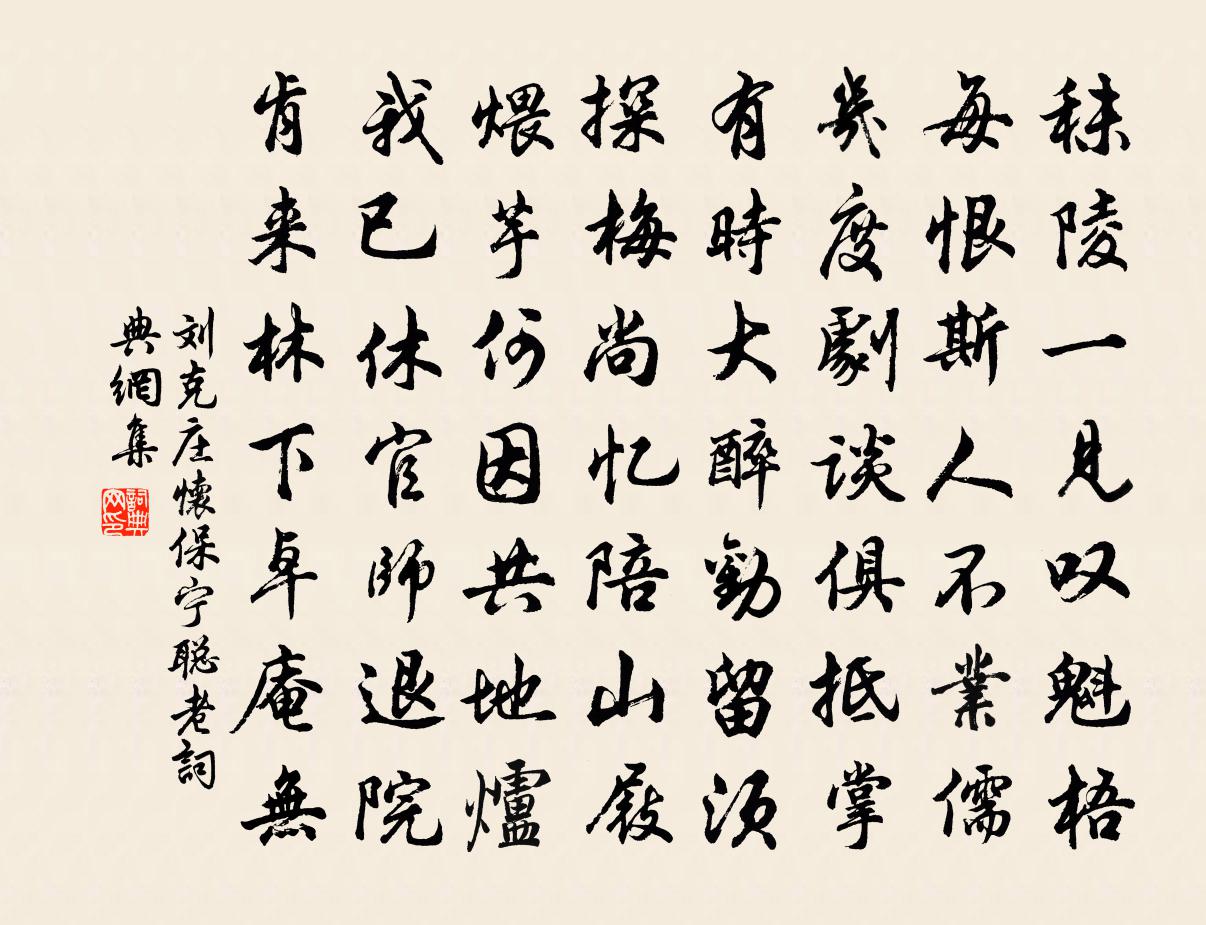 秣陵一見叹魁梧
每恨斯人不業儒
幾度劇談俱抵掌
有時大醉勸留須
探梅尚忆陪山屐
煨芋何因共地爐
我已休官師退院
肯来林下卓庵無
刘克庄懷保宁聪老詞
典網集
詞典网印